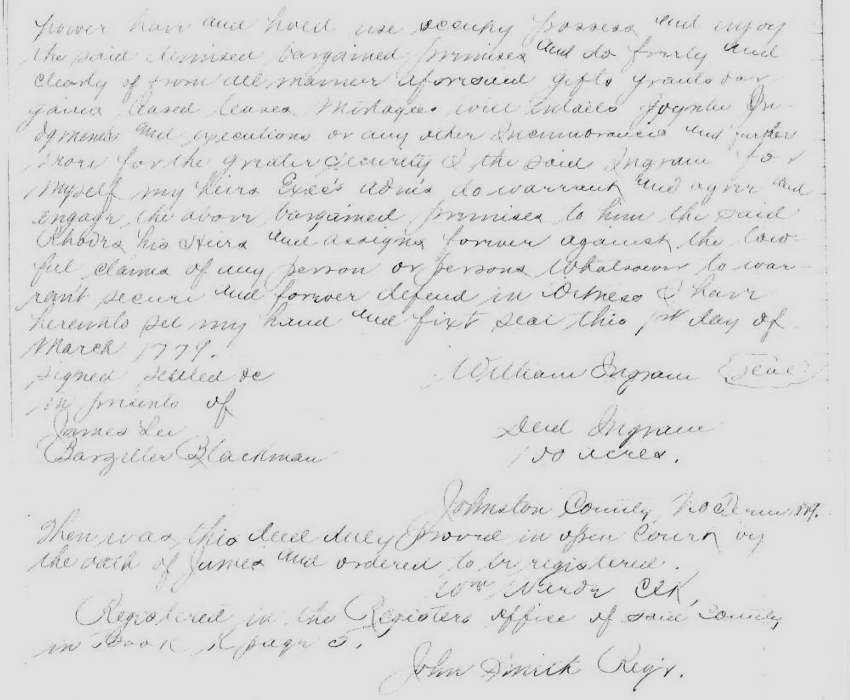 power have and hold use occupy possess and enjoy
the said demised bargained premises and do freely and
clearly of from all manner aforesaid gifts grants bar
gains leased leases Mortages will Entails Joynter Ju-
dgments and executions or any other Incumbrances and further
more for the greater security I the said Ingram for
myself my heirs Exec's adm's do warrant and agree and
engage the above bargained premises to him the said
Rhodes his Heirs and assigns forever against the law-
ful claims of any person or persons Whatsoever to war-
rant secure and forever defend in Witness I have
hereunto set my hand and fixt seal this 1st day of
March 1779.
signed sealed &c
in presents of
William Ingram Seal
James Lee
Barzeller Blackman
Deed Ingram
100 acres.
Johnston County
Then was this deed duly proved in open Court by
the oath of James and ordered to be registered.
Wm Warde Clk,
Registered in the Registers office of said County
in Book K page 5.
John Smith Reg'r.